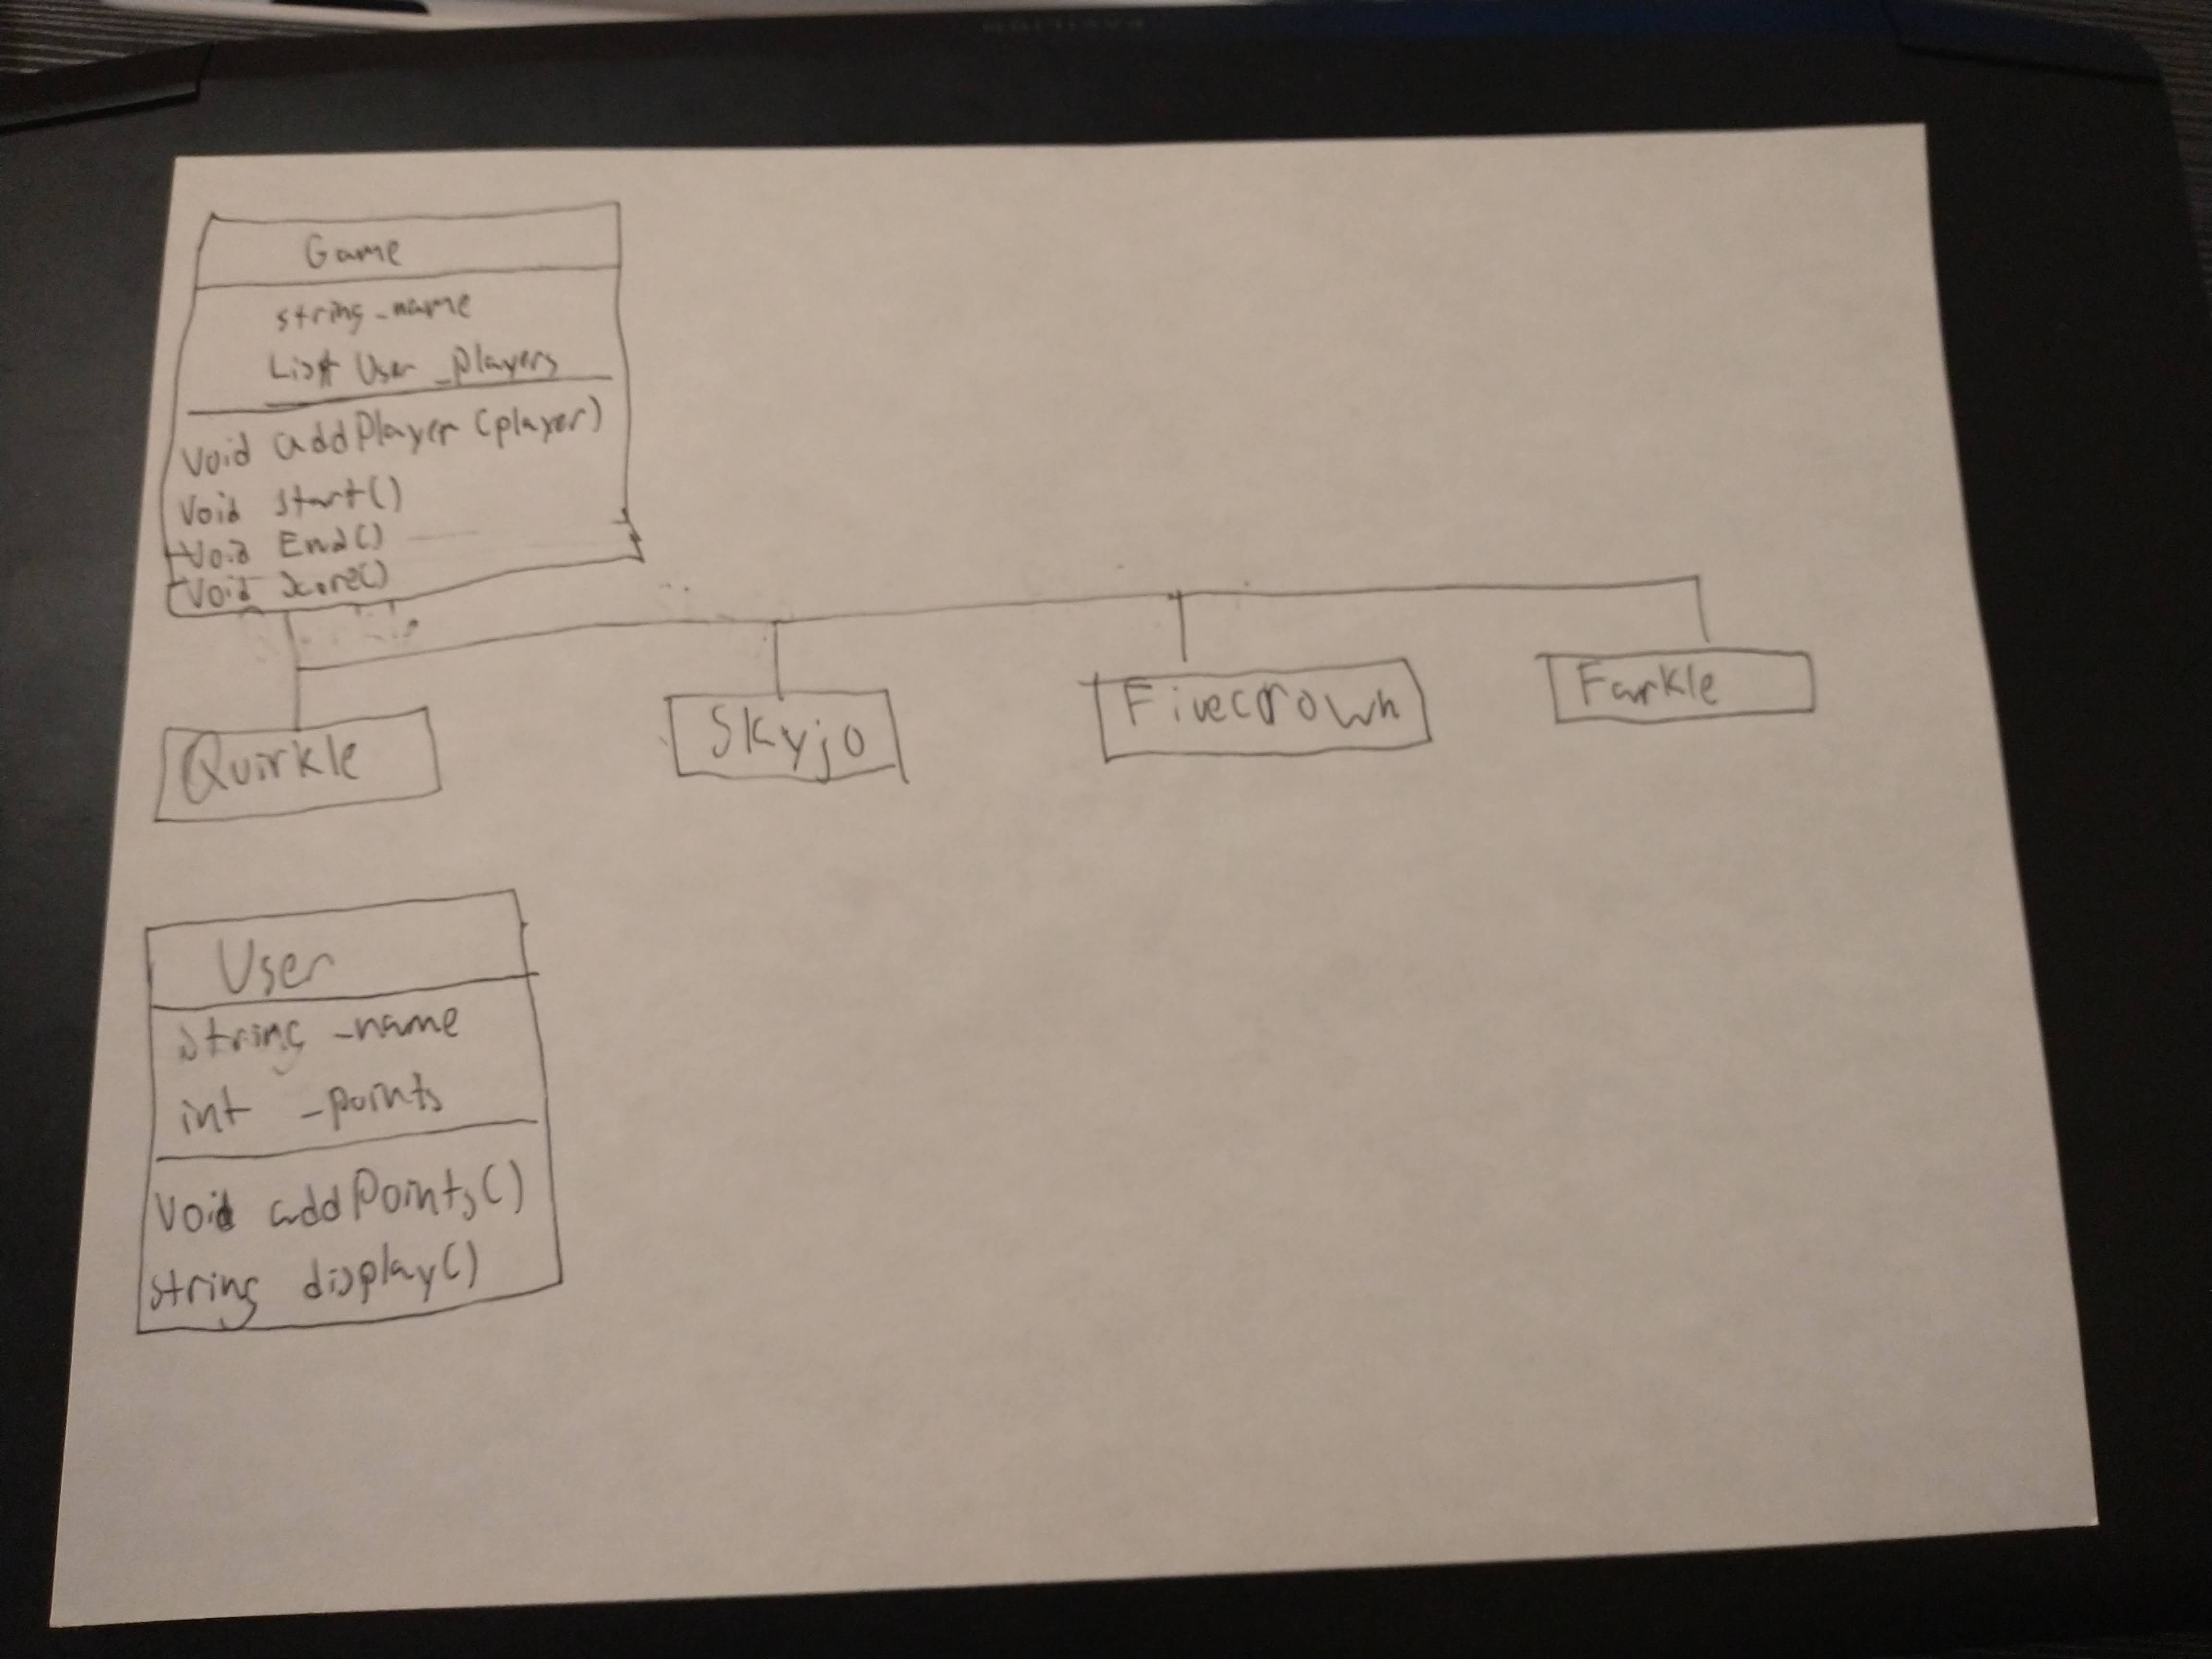 Game
string _name
List User _players
Void addPlayer (player)
Void start()
Void End()
Void Score()
Quirkle
Skyjo
Fivecrown
Farkle
User
string _name
int _points
Void addPoints()
string display()